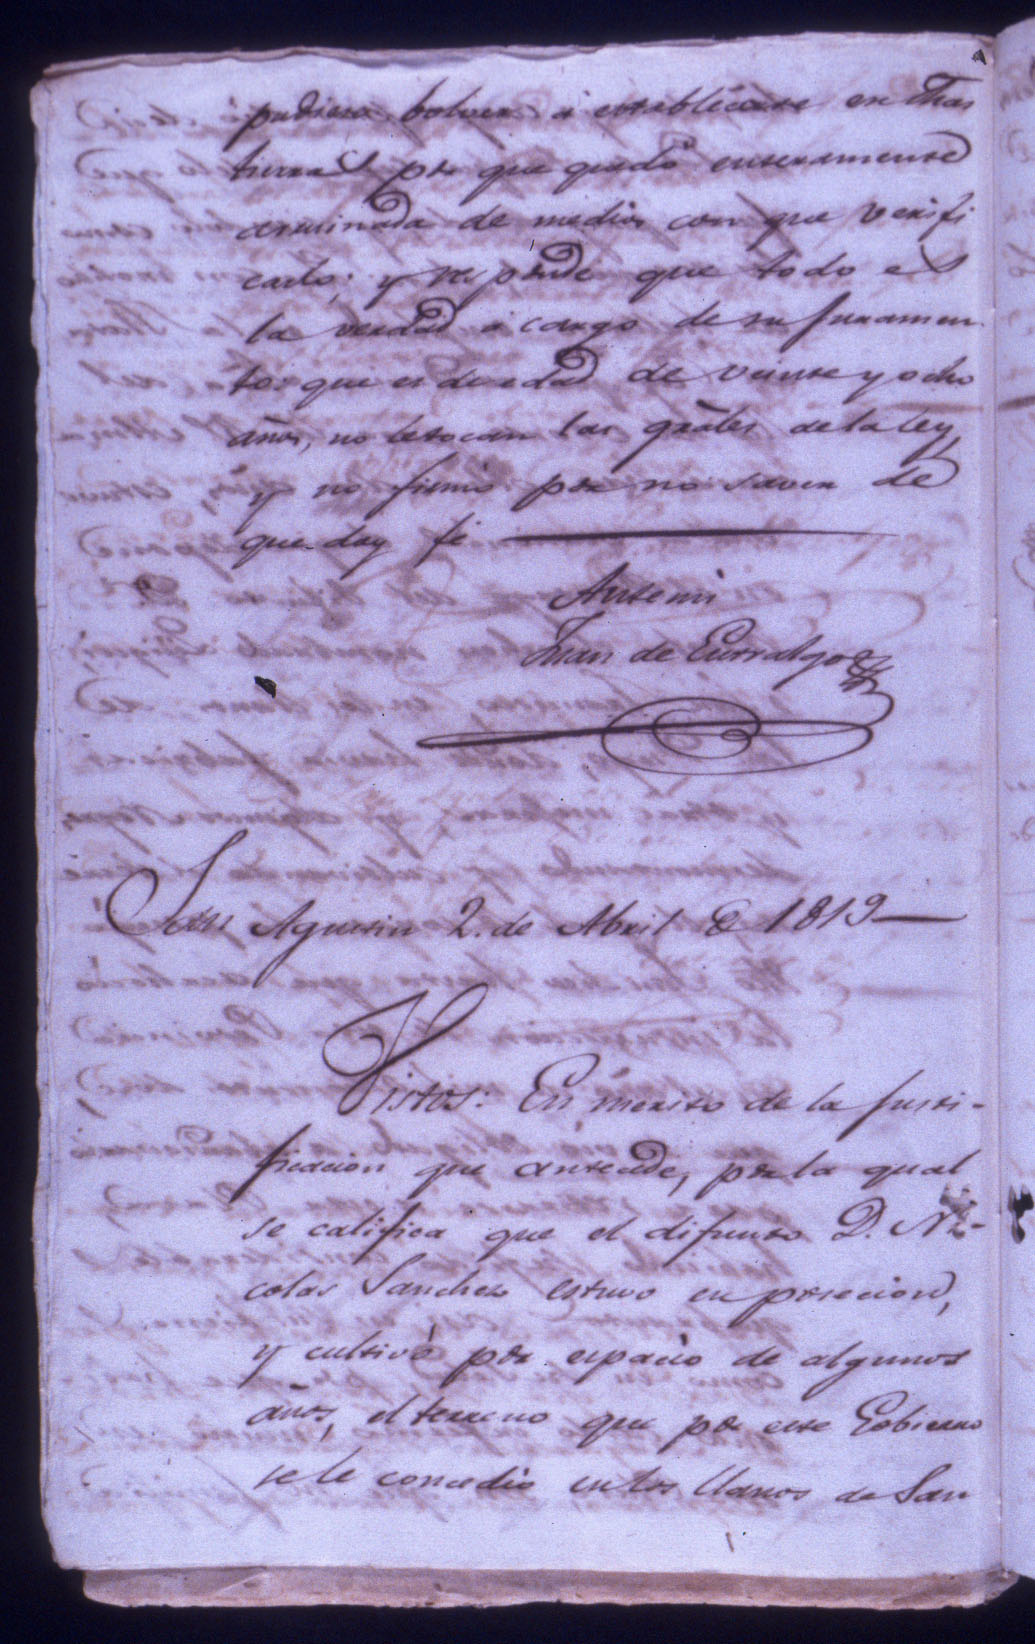 pudiera bolver á establecerse en dhas
tierras por que quedó enteramente
arruinada de medios con que verifi
carlo; y responde que todo es
la verdad a cargo de su juramen
to: que es de edad de veinte y ocho
años, no le tocan las grāles de la ley,
y no firmó por no saver de
que doy fé
Antemi
Juan de Entralgo
San Agustin 2. de Abril de 1819
Vistos: En merito de la justi-
ficacion que antecede, por la qual
se califica que el difunto D. Ni-
colas Sanchez estuvo en posecion,
y cultivó por espacio de algunos
años, el terreno que por este Gobierno
se le concedio en los llanos de San